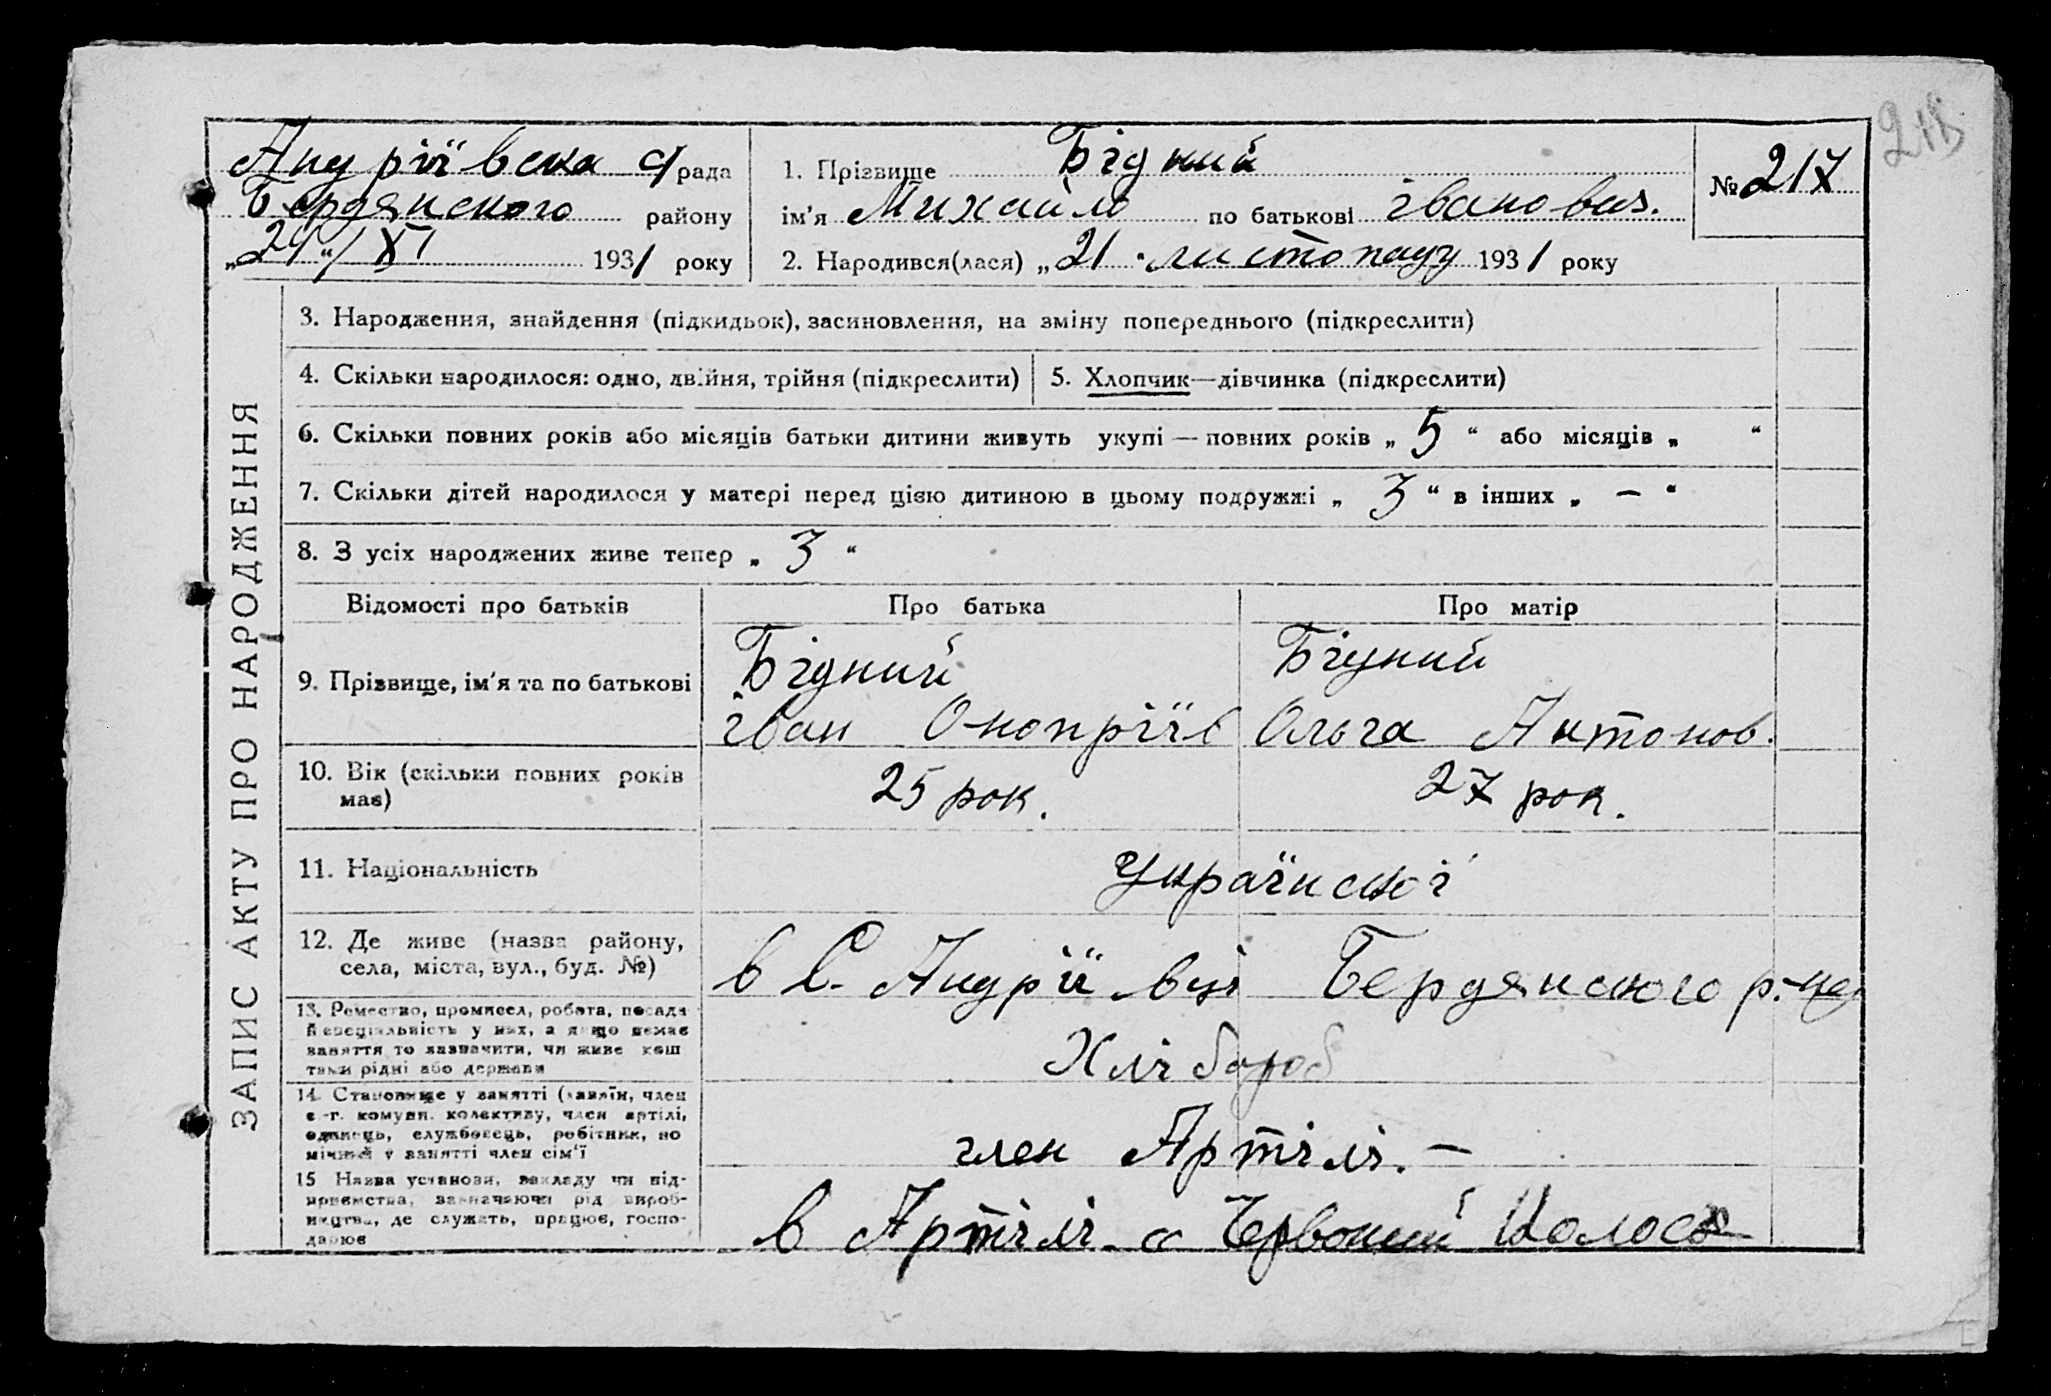 Андріївска с/рада
Бердянского району
„24“/XI 1931 року
1. Прізвище Бідний
ім'я Михайло по батькові іванович.
2. Народився(лася) „21 листопаду 1931 року
№ 217
ЗАПИС АКТУ ПРО НАРОДЖЕННЯ
3. Народження, знайдення (підкидьок), засиновлення, на зміну попереднього (підкреслити)
4. Скільки народилося: одно, двійня, трійня (підкреслити)
5. Хлопчик—дівчинка (підкреслити)
6. Скільки повних років або місяців батьки дитини живуть укупі — повних років „ 5 “ або місяців „ “
7. Скільки дітей народилося у матері перед цією дитиною в цьому подружжі „ 3 “ в інших „ — “
8. З усіх народжених живе тепер „ 3 “
Відомості про батьків Про батька Про матір
9. Прізвище, ім'я та по батькові
Бідний
іван Онопріїв
Бідний
Ольга Антонов.
10. Вік (скільки повних років
має)
25 рок.
27 рок.
11. Національність
Українскої
12. Де живе (назва району,
села, міста, вул., буд. №)
в С. Андріївці Бердянского р-на
13. Ремество, промисел, робота, посада
й спеціяльність у них, а якщо немає
заняття то зазначити, чи живе кош
тами рідні або держави
Хлібороб
14. Становище у занятті (хазяїн, член
с.-г. комуни, колективу, член артілі,
одинець, службовець, робітник, по
мічний у занятті член сім'ї
член Артілі. —
15 Назва установи, закладу чи під-
приємства, зазначаючи рід вироб-
ництва, де служить, працює, госпо-
дарює
в Артілі „ Червоний Колос